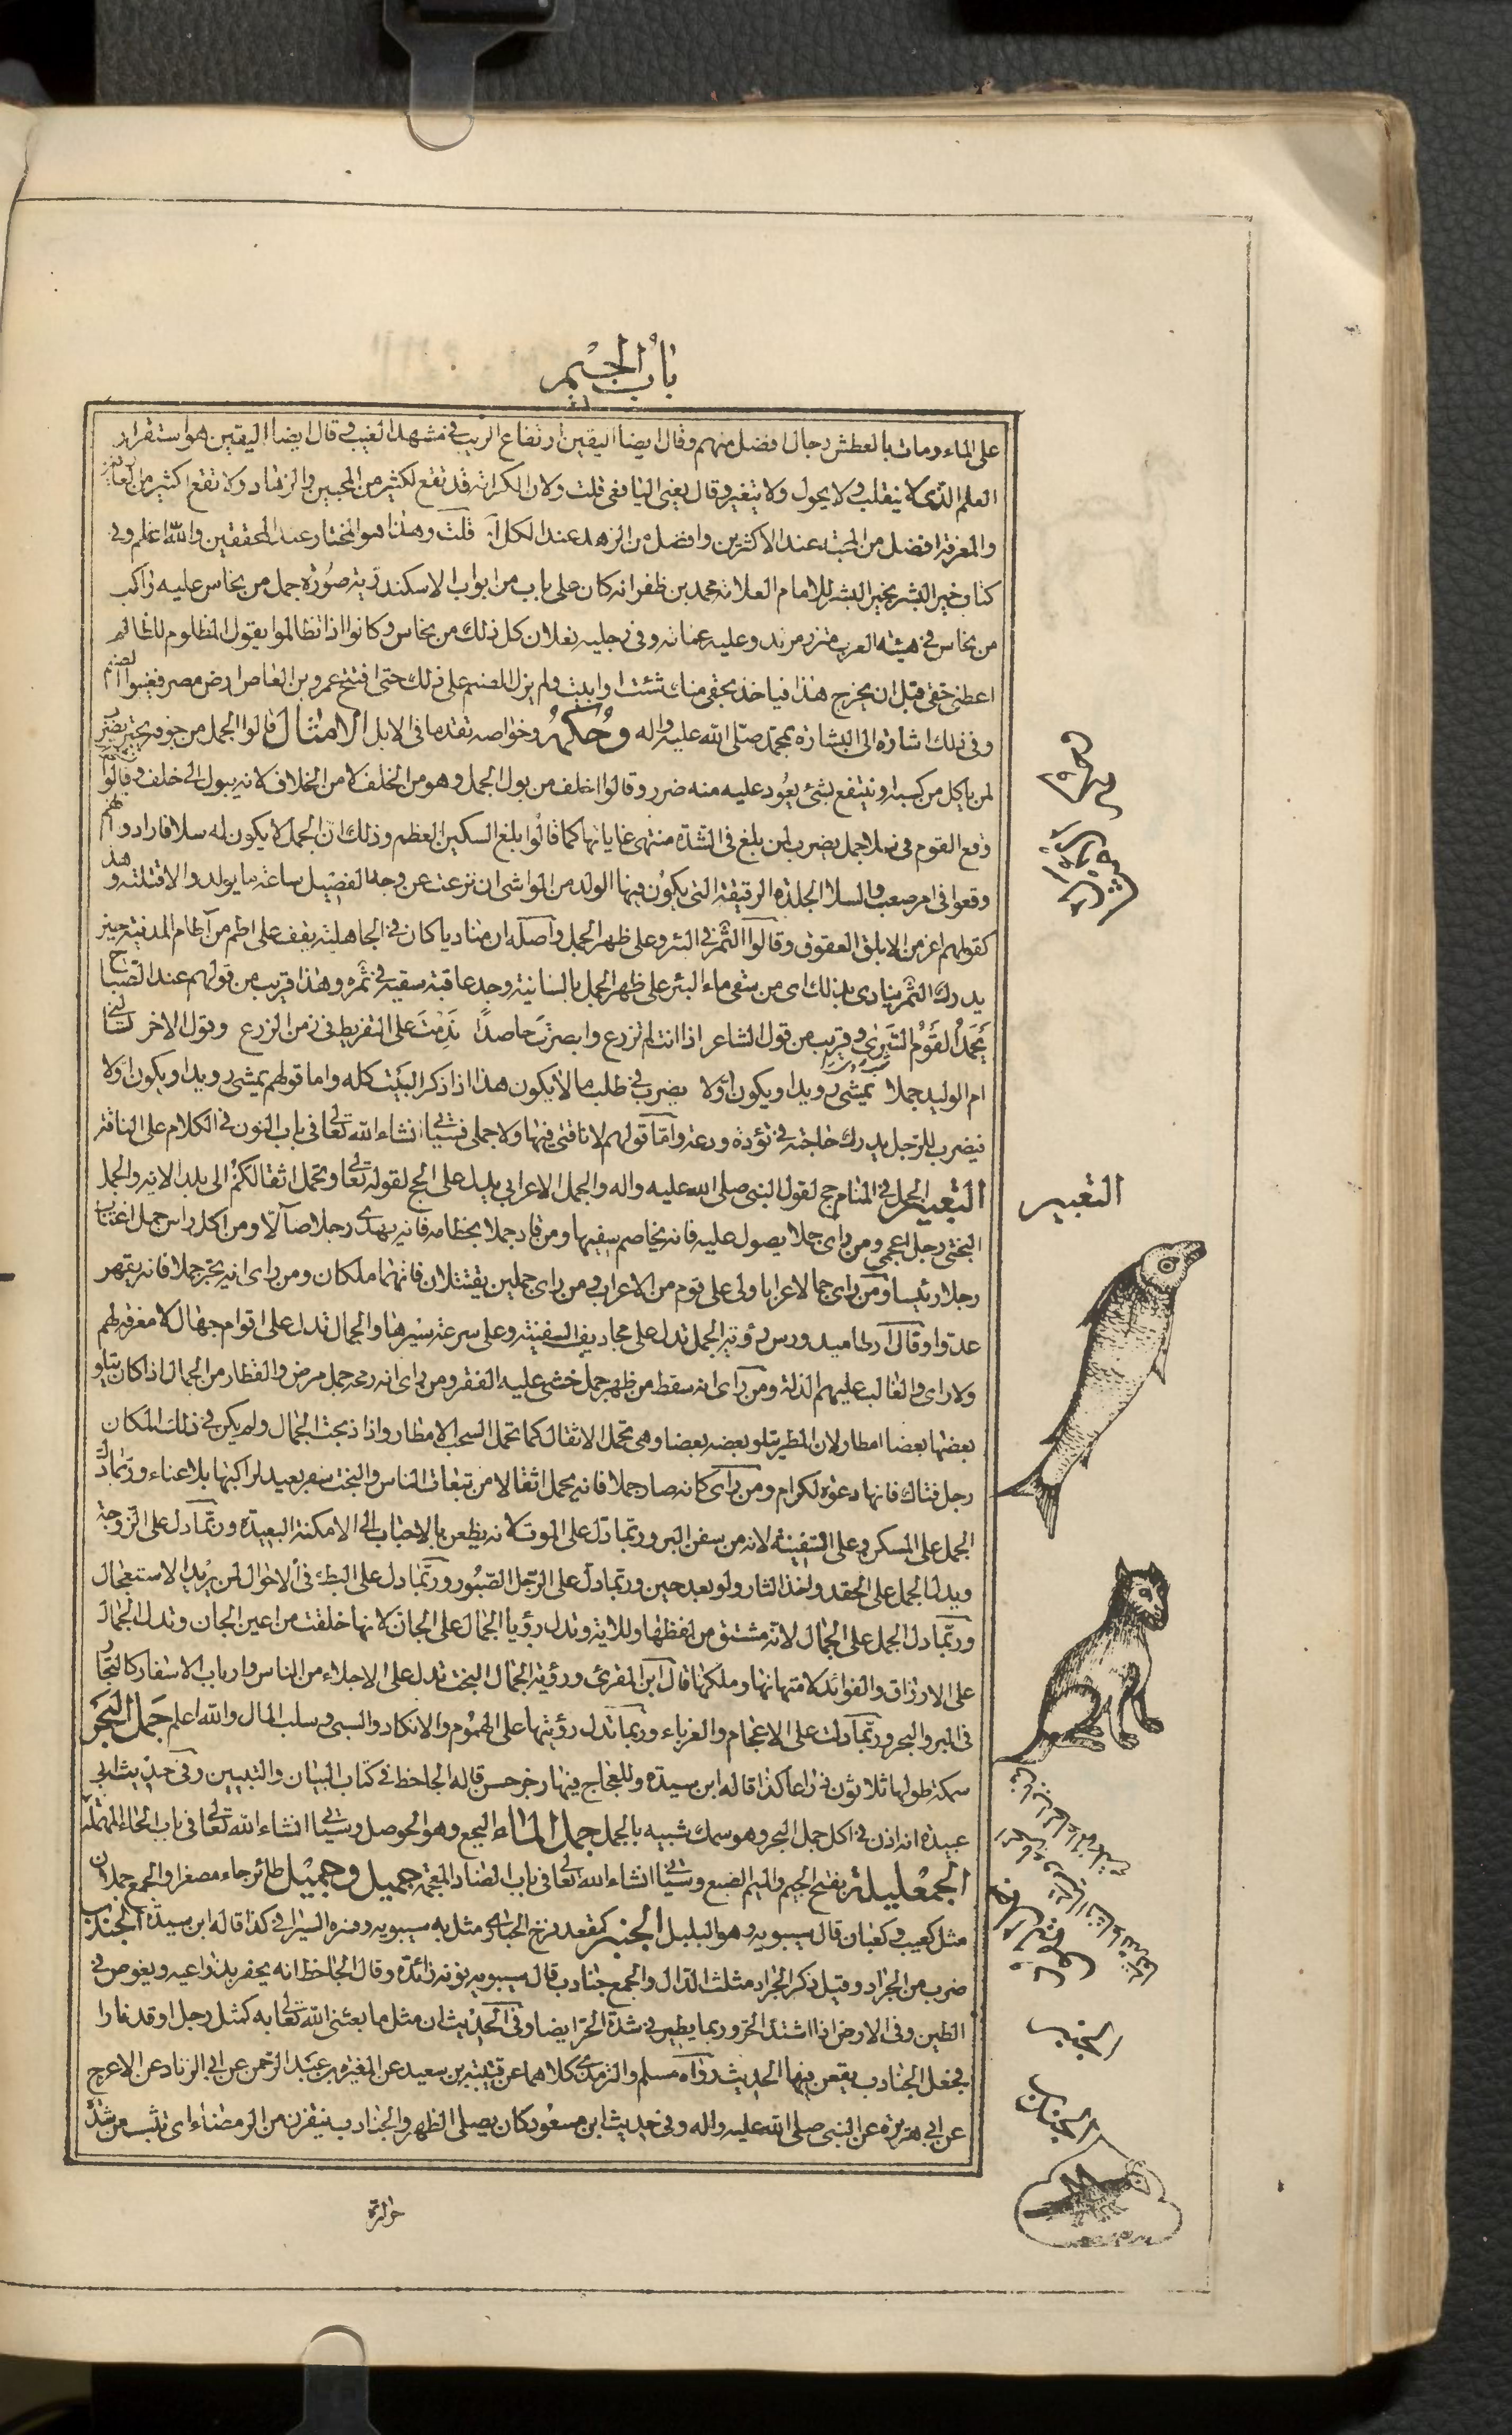 باب الجيم
على الماء ومات بالعطش رجال افضل منهم وقال ايضا اليقين ارتفاع الريب فى مشهد الغيب وقال ايضا اليقين هو استقرار
العلم الذى لا ينقلب ولا يحول ولا يتغير وقال يعنى اليافعى قلت ولان الكرامة قد تقع لكثير من المحبين والزهاد ولا تقع لكثير من العارفين
والمعرفة افضل من المحبة عند الاكثرين وافضل من الزهد عند الكل قلت وهذا هو المختار عند المحققين والله اعلم وفى
كتاب خير البشر بخير البشر للامام العلامة محمد بن ظفر انه كان على باب من ابواب الاسكندرية صورة جمل من نحاس عليه راكب
من نحاس فى هيئة العرب متزر مرتد وعليه عمامة وفى رجليه نعلان كل ذلك من نحاس وكانوا اذا تظالموا يقول المظلوم للظالم
اعطنى حقى قبل ان يخرج هذا فياخذ بحقى منك شئت او ابيت ولم يزل الصنم على ذلك حتى افتتح عمرو بن العاص ارض مصر فغيبوا الصنم
وفى ذلك اشارة الى البشارة بمحمد صلى الله عليه واله وحكمه وخواصه تقدما فى الابل الامثال قالوا الجمل من جوفه يجتر يضرب
لمن ياكل من كسبه او ينتفع بشئ يعود عليه منه ضرر وقالوا اخلف من بول الجمل وهو من الخلف لا من الخلاف لانه يبول الى خلف وقالوا
وقع القوم فى سلا جمل يضرب لمن بلغ فى الشدة منتهى غاياتها كما قالوا بلغ السكين العظم وذلك ان الجمل لا يكون له سلا فارادوا انهم
وقعوا فى امر صعب والسلا الجلدة الرقيقة التى يكون فيها الولد من المواشى ان نزعت عن وجه الفصيل ساعة ما يولد والا قتلته وهذا
كقولهم اعز من الابلق العقوق وقالوا الثمر فى البئر وعلى ظهر الجمل واصله ان مناديا كان فى الجاهلية يقف على اطم من آطام المدينة حين
يدرك الثمر ينادى بذلك اى من سقى ماء البئر على ظهر الجمل بالسانية وجد عاقبة سقيه فى ثمره وهذا قريب من قولهم عند الصباح
يحمد القوم السرى وقريب من قول الشاعر اذا انت لم تزرع وابصرت حاصدا ندمت على التفريط فى زمن الزرع وقول الاخر
ام الوليد جملا يمشى رويدا ويكون اولا يضرب فى طلب ما لا يكون هذا اذا ذكر البيت كله واما قولهم يمشى رويدا ويكون اولا
فيضرب للرجل يدرك حاجته فى تؤدة ودعة واما قولهم لا ناقتى فيها ولا جملى فسياتى انشاء الله تعالى فى باب النون فى الكلام على الناقة
التعبير الجمل فى المنام حج لقول النبى صلى الله عليه واله والجمل الاعرابى يدل على الحج لقوله تعالى وتحمل اثقالكم الى بلد الاية والجمل
البختى رجل اعجمى ومن راى جملا يصول عليه فانه يخاصم سفيها ومن قاد جملا بخطامه فانه يهدى رجلا ضالا ومن اكل راس جمل اغتاب
رجلا رئيسا ومن راى جمالا عرابا ولى على قوم من الاعراب ومن راى جملين يقتتلان فانهما ملكان ومن راى انه يجر جملا فانه يقهر
عدوا وقال ارطاميدورس رؤية الجمل تدل على مجاديف السفينة وعلى سرعة سيرها والجمال تدل على اقوام جهال لا معرفة لهم
ولا راى والغالب عليهم الذلة ومن راى انه سقط من ظهر جمل خشى عليه الفقر ومن راى انه رمحه جمل مرض والقطار من الجمال اذا كان يتلو
بعضها بعضا امطار ولان المطر يتلو بعضه بعضا وهى تحمل الاثقال كما تحمل السحب الامطار واذا ذبحت الجمال ولم يكن فى ذلك المكان
رجل فتاك فانها دعوة لكرام ومن راى كانه صار جملا فانه يحمل اثقالا من تبعات الناس والبخت سفر بعيد لراكبها بلا عناء وربما دل
الجمل على المسكن وعلى السفينة لانه من سفن البر وربما دل على الموت لانه يظعن بالاحباب الى الامكنة البعيدة وربما دل على الزوجة
ويدل الجمل على الحقد واخذ الثار ولو بعد حين وربما دل على الرجل الصبور وربما دل على البطء فى الاحوال لمن يريد الاستعجال
وربما دل الجمل على الجمال لانه مشتق من لفظها وللاية وتدل رؤيا الجمال على الجان لانها خلقت من اعين الجان وتدل الجمال
على الارزاق والفوائد لامتهانها وملكها قال ابن المقرى ورؤية الجمال البخت تدل على الاجلاء من الناس وارباب الاسفار كالتجار
فى البر والبحر وربما دلت على الاعجام والغرباء وربما تدل رؤيتها على الهموم والانكاد والسبى وسلب المال والله اعلم جمل البحر
سمكة طولها ثلاثون ذراعا كذا قاله ابن سيدة وللعجاج فيها رجز حسن قاله الجاحظ فى كتاب البيان والتبيين وفى حديث ابى
عبيدة انه اذن فى اكل جمل البحر وهو سمك شبيه بالجمل جمل الماء البجع وهو الحوصل وسياتى انشاء الله تعالى فى باب الحاء المهملة
الجمعليلة بفتح الجيم والميم الضبع وسياتى انشاء الله تعالى فى باب الضاد المعجمة جميل وجميل طائر جاء مصغرا والجمع جملان
مثل كعيب وكعبان قال سيبويه وهو البلبل الجنبر كمقعد فرخ الحبارى مثل به سيبويه وفسره السيرافى كذا قاله ابن سيدة الجندب
ضرب من الجراد وقيل ذكر الجراد مثلث الدال والجمع جنادب قال سيبويه نونه زائدة وقال الجاحظ انه يحفر بذراعيه ويغوص فى
الطين وفى الارض اذا اشتد الحر وربما يطير فى شدة الحر ايضا وفى الحديث ان مثل ما بعثنى الله تعالى به كمثل رجل اوقد نارا
فجعل الجنادب يقعن فيها الحديث رواه مسلم والترمذى كلاهما عن قتيبة بن سعيد عن المغيرة بن عبد الرحمن عن ابى الزناد عن الاعرج
عن ابى هريرة عن النبى صلى الله عليه واله وفى حديث ابن مسعود كان يصلى الظهر والجنادب ينقزن من الرمضاء اى تثب من شدة
التعبير
الجنبر
الجندب
حرارة